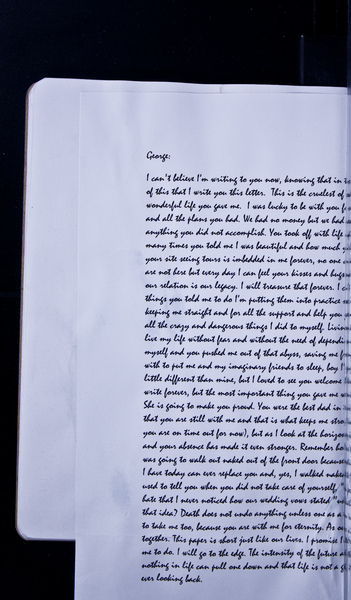 George:
I can't believe I'm writing to you now, knowing that in
of this that I write you this letter. This is the cruelest of
wonderful life you gave me. I was lucky to be with you
and all the plans you had. We had no money but we had
anything you did not accomplish. You took off with life
many times you told me I was beautiful and how much
your site seeing tours is imbedded in me forever, no one
are not here but every day I can feel your kisses and hugs
our relation is our legacy. I will treasure that forever. I
things you told me to do I'm putting them into practice
keeping me straight and for all the support and help you
all the crazy and dangerous things I did to myself. Living
live my life without fear and without the need of depending
myself and you pushed me out of that abyss, saving me
with to put me and my imaginary friends to sleep, boy
little different than mine, but I loved to see you welcome
write forever, but the most important thing you gave me
She is going to make you proud. You were the best dad in
that you are still with me and that is what keeps me
you are on time out for now), but as I look at the horizon
and your absence has made it even stronger. Remember
was going to walk out naked out of the front door because
I have today can ever replace you and, yes, I walked naked
used to tell you when you did not take care of yourself,
hate that I never noticed how our wedding vows stated
that idea? Death does not undo anything unless one as a
to take me too, because you are with me for eternity. As
together. This paper is short just like our lives. I promise
me to do. I will go to the edge. The intensity of the future
nothing in life can pull one down and that life is not a
ever looking back.